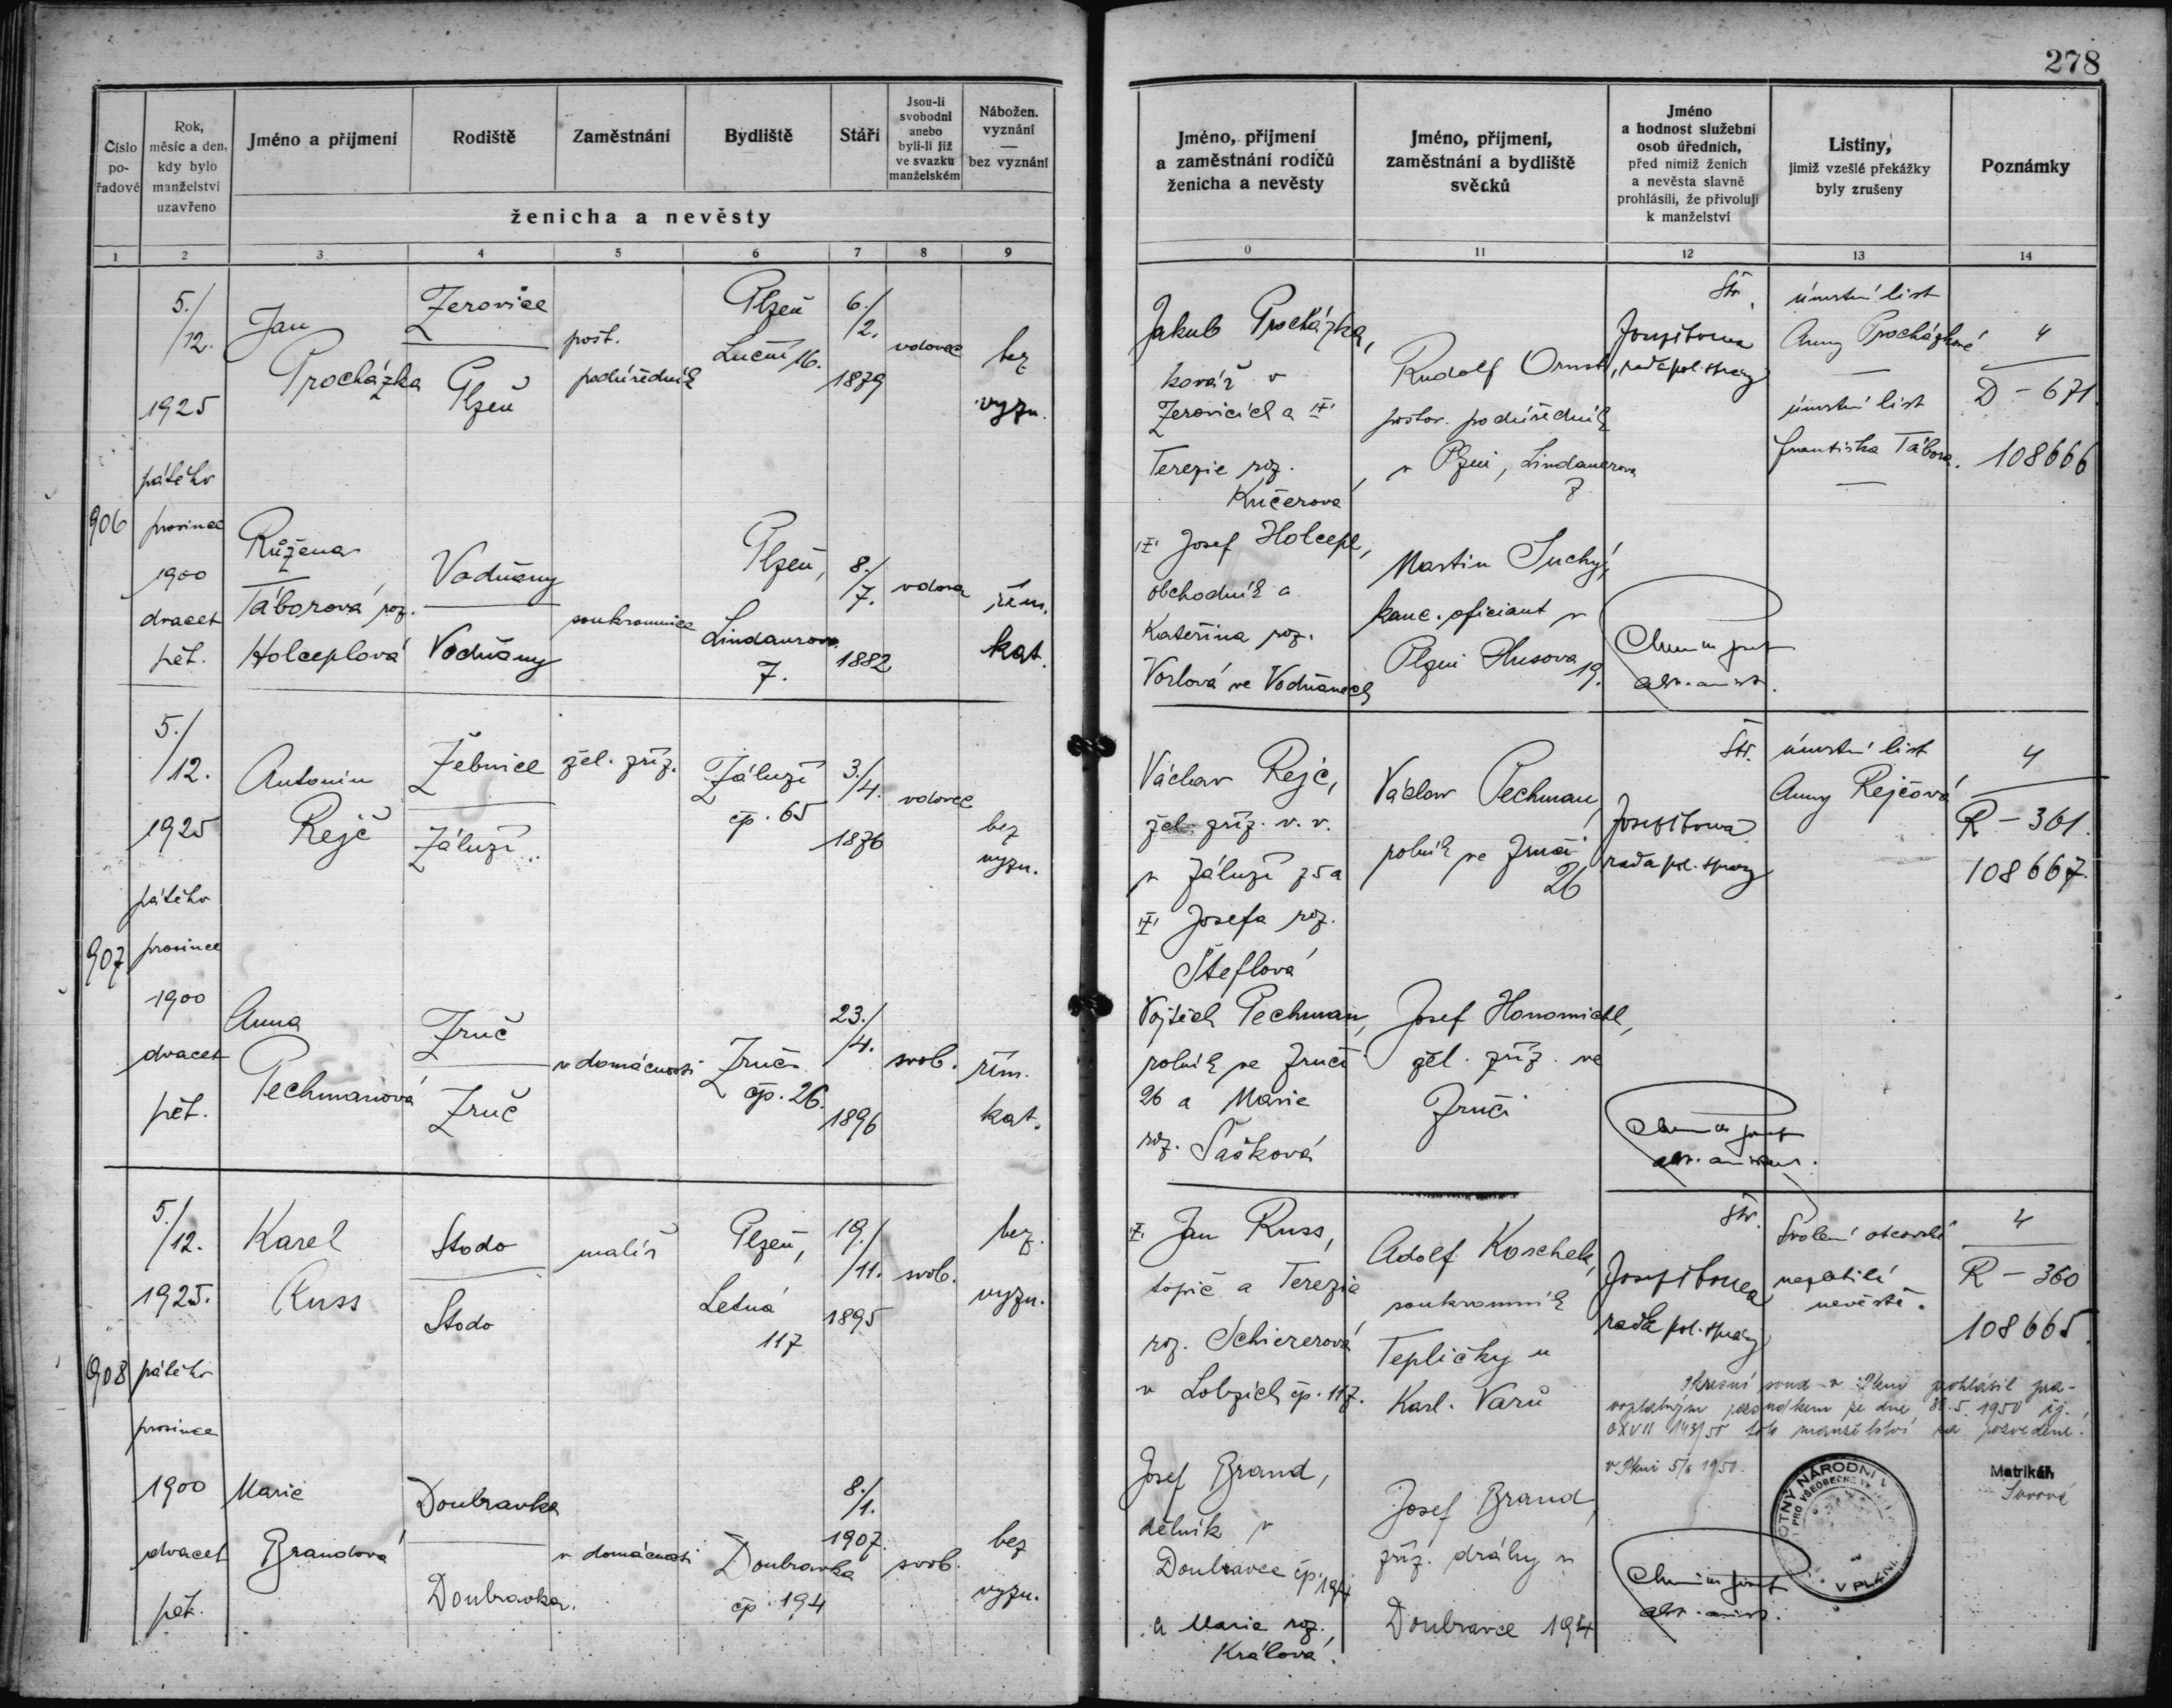 278
Číslo
po-
řadové
Rok,
měsíc a den,
kdy bylo
manželství
uzavřeno
Jméno a příjmení
Rodiště
Zaměstnání
Bydliště
Stáří
Jsou-li
svobodni
anebo
byli-li již
ve svazku
manželském
Nábožen.
vyznání
—
bez vyznání
ženicha a nevěsty
Jméno, příjmení
a zaměstnání rodičů
ženicha a nevěsty
Jméno, příjmení,
zaměstnání a bydliště
svědků
Jméno
a hodnost služební
osob úředních,
před nimiž ženich
a nevěsta slavně
prohlásili, že přivolují
k manželství
Listiny,
jimiž vzešlé překážky
byly zrušeny
Poznámky
1 2 3 4 5 6 7 8 9 0 11 12 13 14
906
5./
/12.
1925
pátého
prosince
1900
dvacet
pět.
Jan
Procházka
Zerovice
Plzeň
pošt.
podúředník
Plzeň
Luční 16.
6./
/2.
1879
vdovec
bez
vyzn.
Růžena
Táborová roz.
Holceplová
Vodňany
Vodňany
soukromnice
Plzeň,
Lindaurova
7.
8./
/7.
1882
vdova
řím.
kat.
Jakub Procházka,
kovář v
Zerovicích a
Terezie roz.
Kučerová
Josef Holcepl,
obchodník a
Kateřina roz.
Vorlová ve Vodňanech
Rudolf Ornst,
poštov. podúředník
v Plzni, Lindauerova
7
Martin Suchý,
kanc. oficiant v
Plzni Husova
19.
rada pol. správy
úmrtní list
Anny Procházkové
úmrtní list
Františka Tábora.
4
D - 671.
108666
907
5./
/12.
1925
pátého
prosince
1900
dvacet
pět.
Antonín
Rejč
Žebnice
Záluží
žel. zříz.
Záluží
čp. 65
3./
/4.
1876
vdovec
bez
vyzn.
Anna
Pechmanová
Zruč
Zruč
v domácnosti
Zruč
čp. 26.
23./
/4.
1896
svob.
řím.
kat.
Václav Rejč,
žel. zříz. v. v.
v Záluží
Josefa roz.
Šteflová
Vojtěch Pechman,
rolník ve Zruči
26 a Marie
roz. Šašková
Václav Pechman,
rolník ve Zruči
26
Josef Honomichl,
žel. zříz. ve
Zruči
rada pol. správy
úmrtní list
Anny Rejčové
4
R - 361.
108667.
908
5./
/12.
1925.
pátého
prosince
1900
dvacet
pět.
Karel
Russ
Stodo
Stodo
malíř
Plzeň,
Letná
117
19./
/11.
1895
svob.
bez.
vyzn.
Marie
Brandová
Doubravka
Doubravka.
v domácnosti
Doubravka
čp. 194
8./
/1.
1907.
svob.
bez
vyzn.
Jan Russ,
topič a Terezie
roz. Schiererová
v Lobzích čp. 117.
Josef Brand,
dělník v
Doubravce čp. 194
a Marie roz.
Králová.
Adolf Koschek,
soukromník
Tepličky u
Karl. Varů
Josef Brand,
zříz. dráhy v
Doubravce 194
rada pol. správy
Svolení otcovské
nezletilé
nevěstě.
4
R - 360
108665.
Okresní soud v Plzni prohlásil pra-
voplatným rozsudkem ze dne 5. 1950
toto manželství za rozvedené.
v Plzni 5/6 1950.
NÁRODNÍ V
PRO VŠEOBECNÉ
V PLZNI
Matrikář